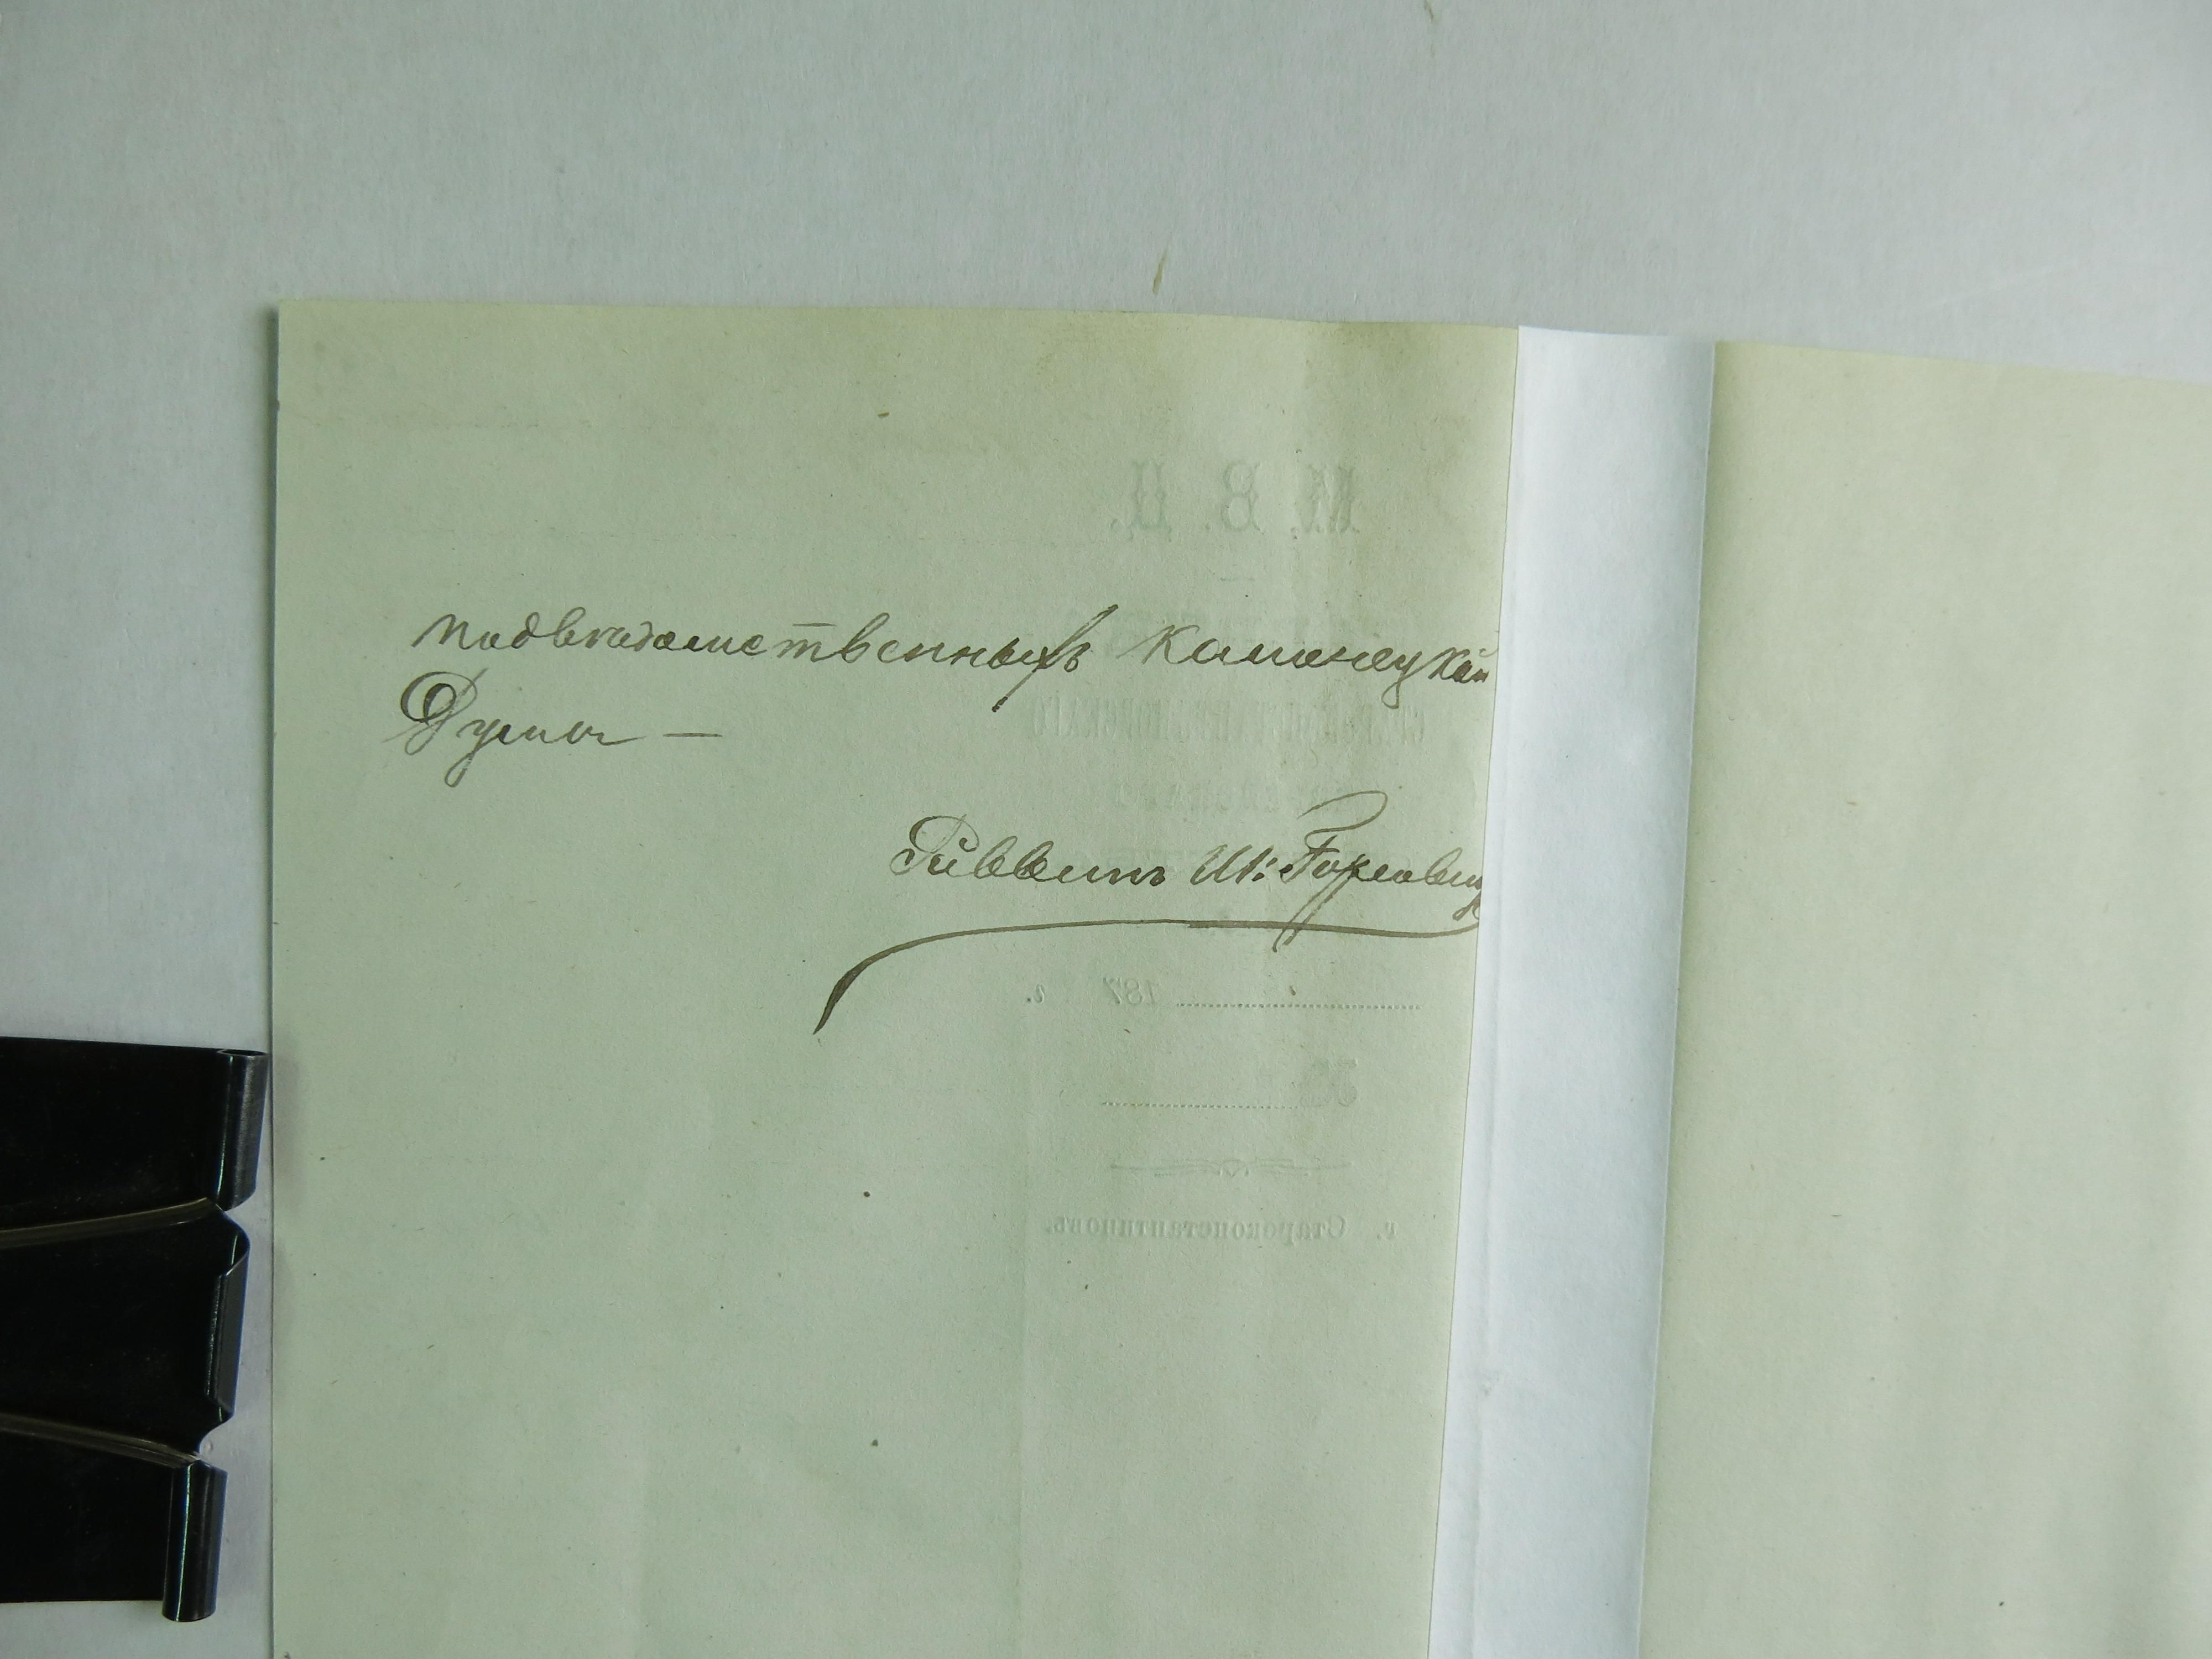 подвѣдомственныхъ Каменецкой
Думы —
Раввинъ Ш: Горовиц
М. В. Д.
187 г.
№
г. Староконстантиновъ.